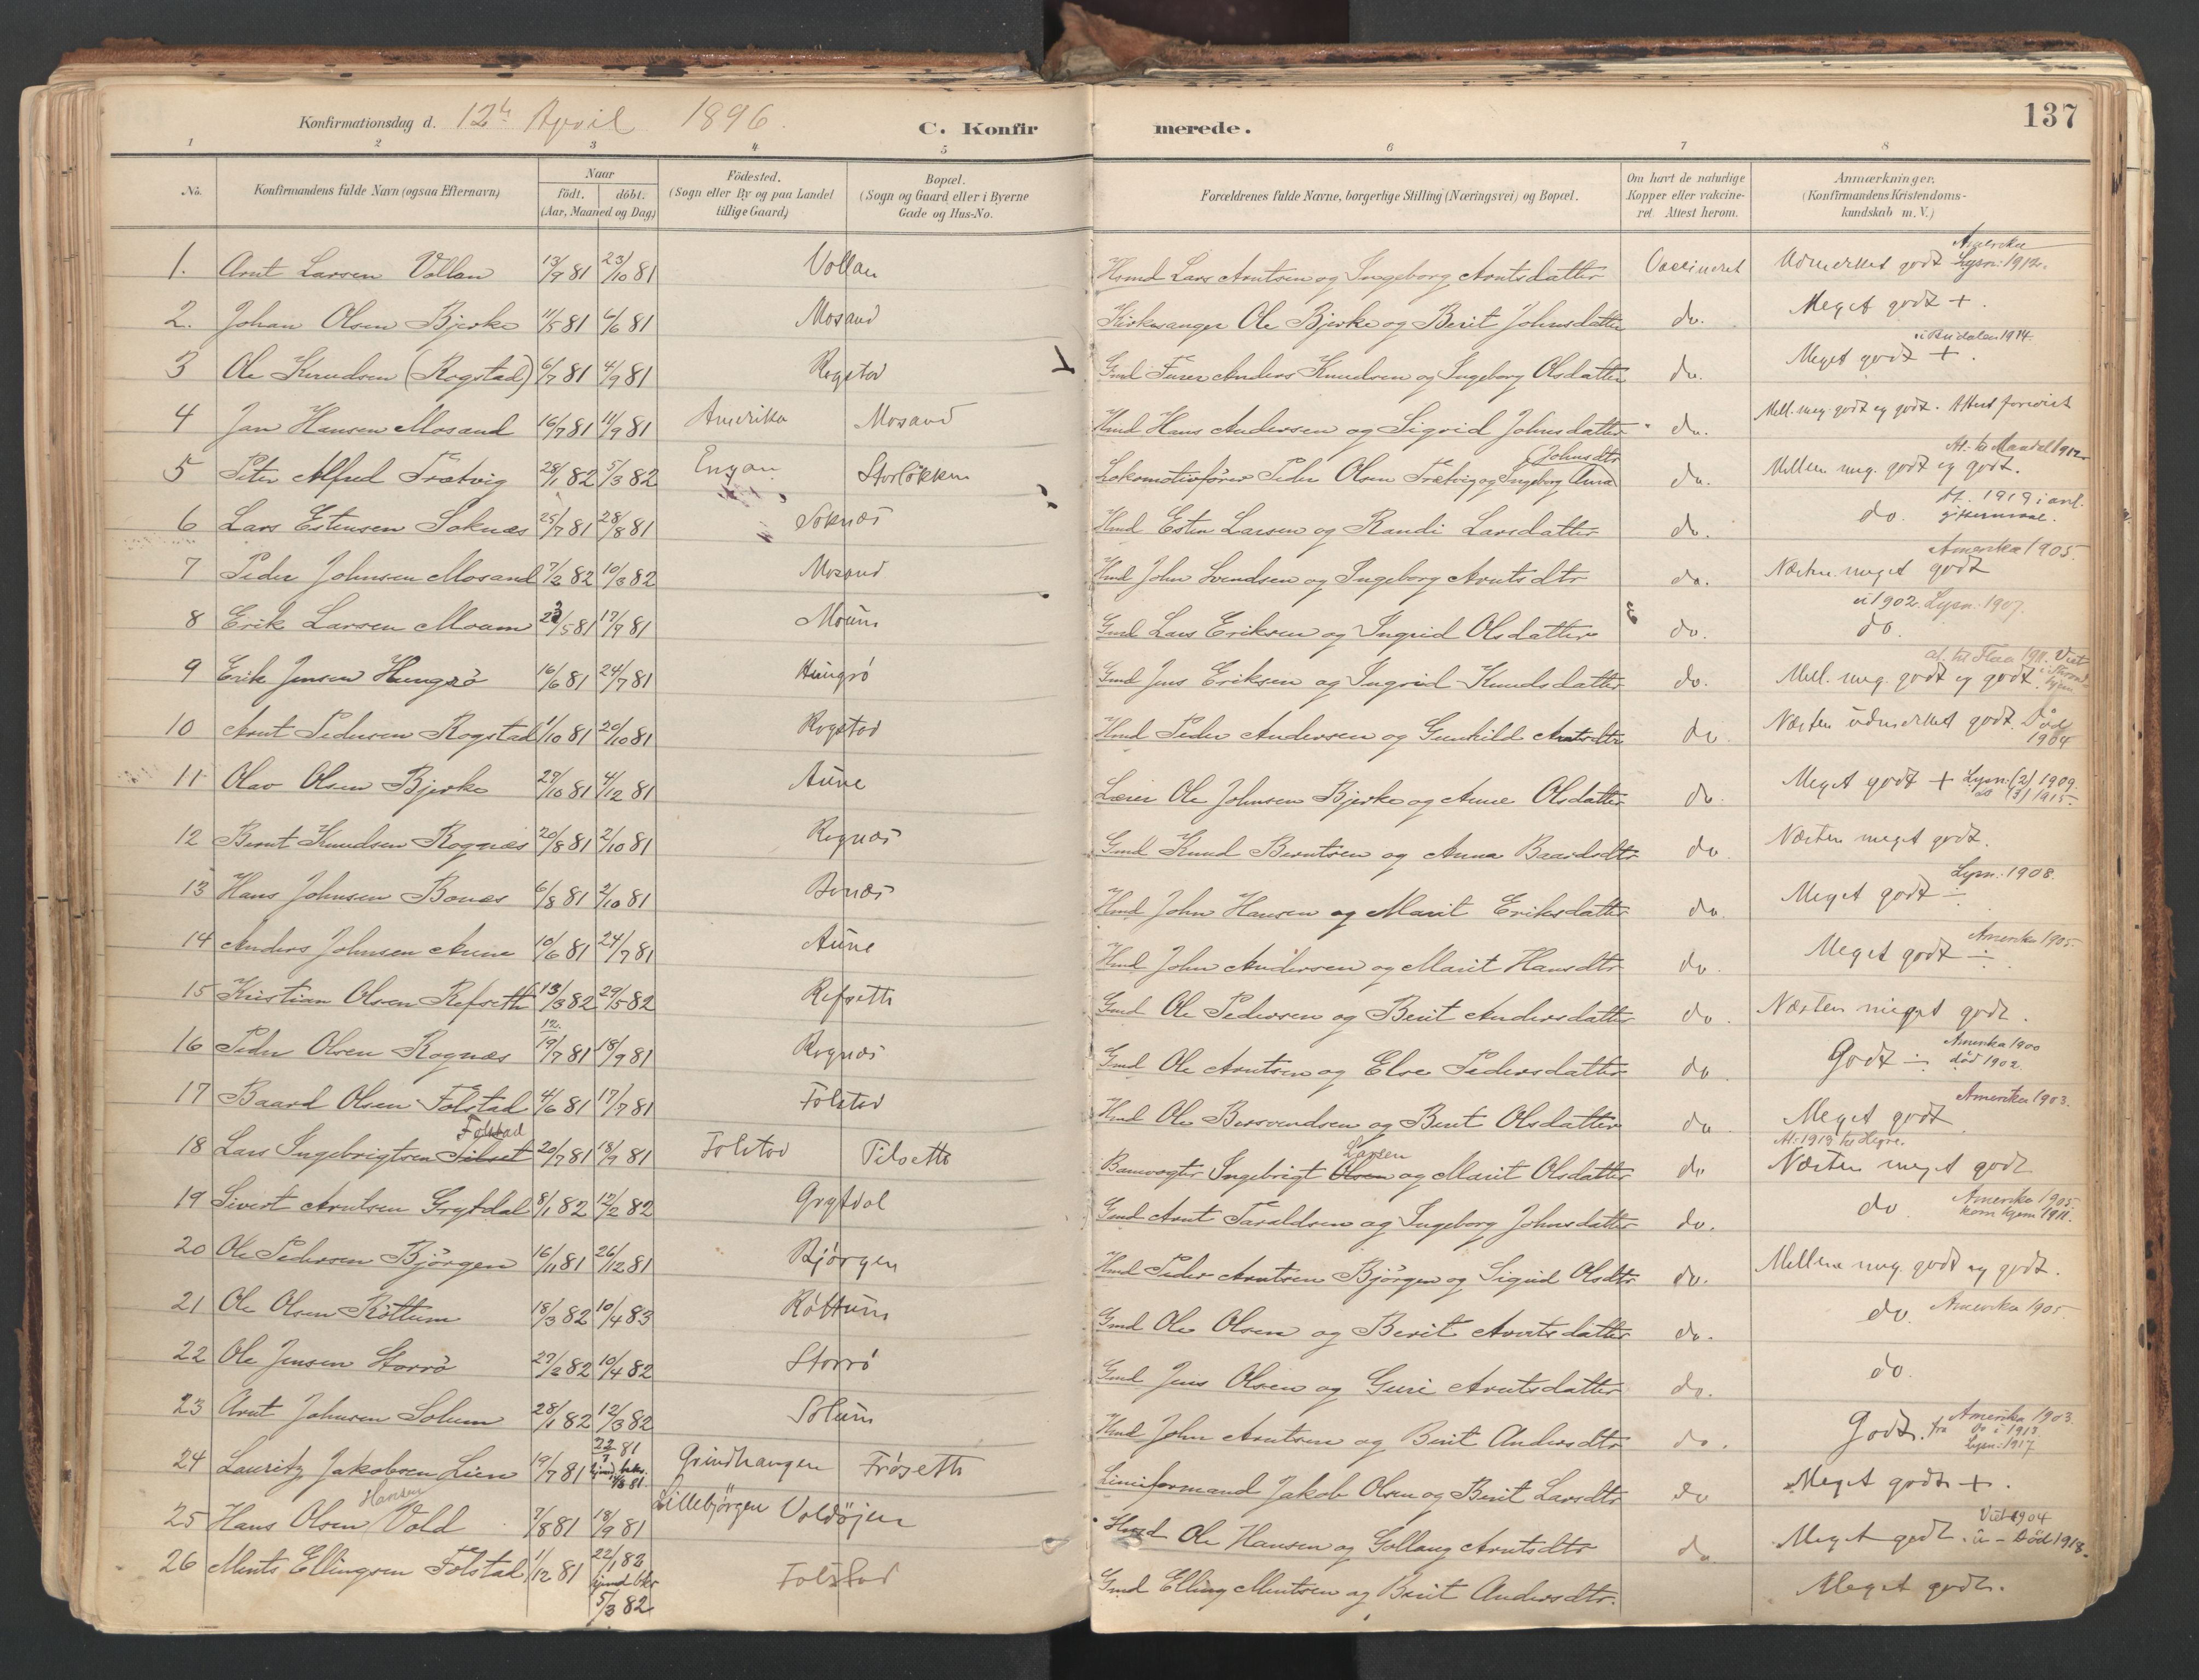 Konfirmationsdag d. 12te April 1896. C. Konfirmerede. 137
1 2 3 4 5 6 7 8
No. Konfirmandens fulde Navn (ogsaa Efternavn) Naar født. døbt. (Aar, Maaned og Dag) Fødested. (Sogn eller By og paa Landet tillige Gaard) Bopæl. (Sogn og Gaard eller i Byerne Gade og Hus-No. Forældrenes fulde Navne, borgerlige Stilling (Næringsvei) og Bopæl. Om havt de naturlige Kopper eller vakcineret Attest herom. Anmærkninger. (Konfirmandens Kristendomskundskab m. V.)
1. Arnt Larsen Vollan 13/9 81 23/10 81 Vollan Hsmd Lars Arntsen og Ingeborg Arntsdatter Vaccineret Udmerket godt Amerika Lysn: 1912.
2. Johan Olsen Bjerke 11/5 81 6/6 81 Mosand Kirkesanger Ole Bjerke og Berit Johnsdatter do. Meget godt +.
3 Ole Knudsen (Rogstad) 6/7 81 4/9 81 Rogstad Gmd Furer Anders Knudsen og Ingeborg Olsdatter do. Meget godt +. i Budalen 1914.
4 Jan Hansen Mosand 16/7 81 11/9 81 Amerika Mosand Hmd Hans Andersen og Sigrid Johnsdatter do. Mell. meg. godt og godt. Attest forevist
5 Peter Alfred Trætvig 28/1 82 5/3 82 Engan Storløkken Lokomotivfører Peder Olsen Trætvig og Ingeborg Anna Johnsdtr do. Mellem meg. godt og godt. At. til Mandal 1912
6 Lars Estensen Soknæs 25/7 81 28/8 81 Soknæs Hmd Esten Larsen og Randi Larsdatter do. do. At. 1919 i anl. giftermaal.
7 Peder Johnsen Mosand 7/2 82 10/3 82 Mosand Hmd John Svendsen og Ingeborg Arntsdtr do. Næsten meget godt Amerika 1905.
8 Erik Larsen Moum 23/5 81 17/9 81 Moum Gmd Lars Eriksen og Ingrid Olsdatter do. do. vi 1902. Lysn: 1907.
9 Erik Jensen Haugrø 16/6 81 24/7 81 Haugrø Gmd Jens Eriksen og Ingrid Knudsdatter do. Mell. meg. godt og godt. at. til Flaa 1911. Viet
10 Arnt Pedersen Rogstad 1/10 81 20/10 81 Rogstad Hmd Peder Andersen og Gunhild Arntsdtr do Næsten udmerket godt. Død 1904
11 Olav Olsen Bjerke 27/10 81 4/12 81 Aune Lærer Ole Johnsen Bjerke og Anne Olsdatter do. Meget godt + Lysn: (2) 1909. do (3) 1915.
12 Bernt Knudsen Rognæs 20/8 81 2/10 81 Rognæs Gmd Knud Berntsen og Anna Baardsdtr do. Næsten meget godt.
13 Hans Johnsen Bonæs 6/8 81 2/10 81 Bonæs Hmd John Hansen og Marit Eriksdatter do. Meget godt ÷ Lysn: 1908.
14 Anders Johnsen Aune 10/6 81 24/7 81 Aune Hmd John Andersen og Marit Hansdtr do. Meget godt ÷ Amerika 1905.
15 Kristian Olsen Refseth 13/3 82 29/5 82 Refseth Gmd Ole Pedersen og Berit Andersdatter do. Næsten meget godt.
16 Peder Olsen Rognæs 12. 19/7 81 18/9 81 Rognæs Gmd Ole Arntsen og Else Pedersdatter do Godt ÷ Amerika 1900 død 1902.
17 Baard Olsen Folstad 4/6 81 17/7 81 Folstad Hmd Ole Bersvendsen og Berit Olsdatter do Meget godt Amerika 1903.
18 Lars Ingebrigtsen Tilset Folstad 20/7 81 18/9 81 Folstad Tilseth Banevogter Ingebrigt Olsen Larsen og Marit Olsdatter do Næsten meget godt At. 1919 til Leg
19 Sivert Arntsen Grytdal 8/1 82 12/2 82 Grytdal Gmd Arnt Taraldsen og Ingeborg Johnsdatter do. do Amerika 1905. kom hjem 1911.
20 Ole Pedersen Bjørgen 16/11 81 26/12 81 Bjørgen Hmd Peder Arntsen Bjørgen og Sigrid Olsdtr do. Mellem meg. godt og godt.
21 Ole Olsen Røttum 18/3 82 10/4 83 Røttum Gmd Ole Olsen og Berit Arntsdatter do. do. Amerika 1905
22 Ole Jensen Storrø 27/2 82 10/4 82 Storrø Gmd Jens Olsen og Guri Arntsdatter do. do.
23 Arnt Johnsen Solum 28/1 82 12/3 82 Solum Hmd John Arntsen og Berit Andersdtr do. Godt. Amerika 1903. fra do i 1913. Lysn: 1917
24 Lauritz Jakobsen Lien 19/7 81 22/7 81 hjemd. bekr. 14/8 81. Grindhaugen Frøseth Linieformand Jakob Olsen og Berit Larsdtr do Meget godt +.
25 Hans Olsen Hansen Vold 7/8 81 18/9 81 Lillebjørgen Voldøjen Husmd Ole Hansen og Gollaug Arntsdtr do Meget godt. Viet 1904 Død 1918.
26 Ments Ellingsen Folstad 1/12 81 22/1 82 hjemd bkr 5/3 82 Folstad Gmd Elling Mentsen og Berit Andersdtr. Meget godt.